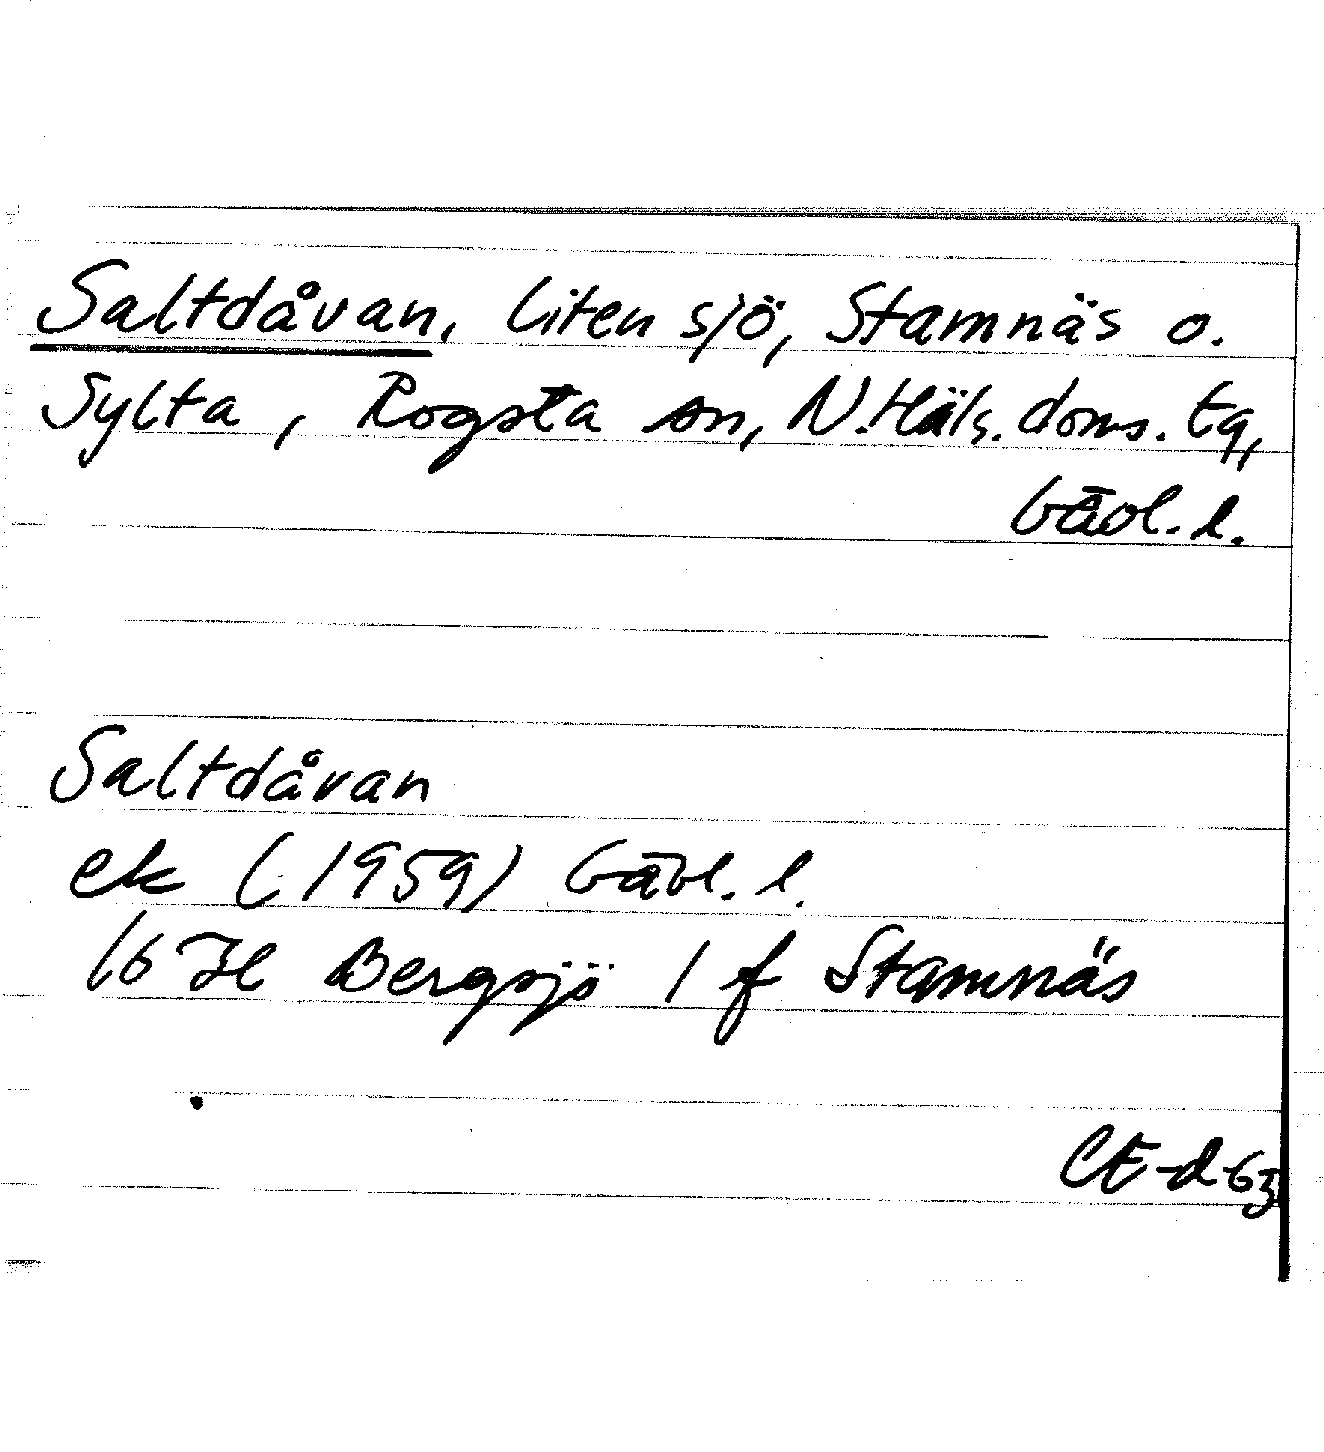 Saltdåvan, liten sjö, Stamnäs o.
Sylta, Rogsta sn, N.Häls. doms. tg,
Gävl. l.
Saltdåvan
ek (1959) Gävl. l.
16 H Bergsjö 1 f Stamnäs
CE-d-63